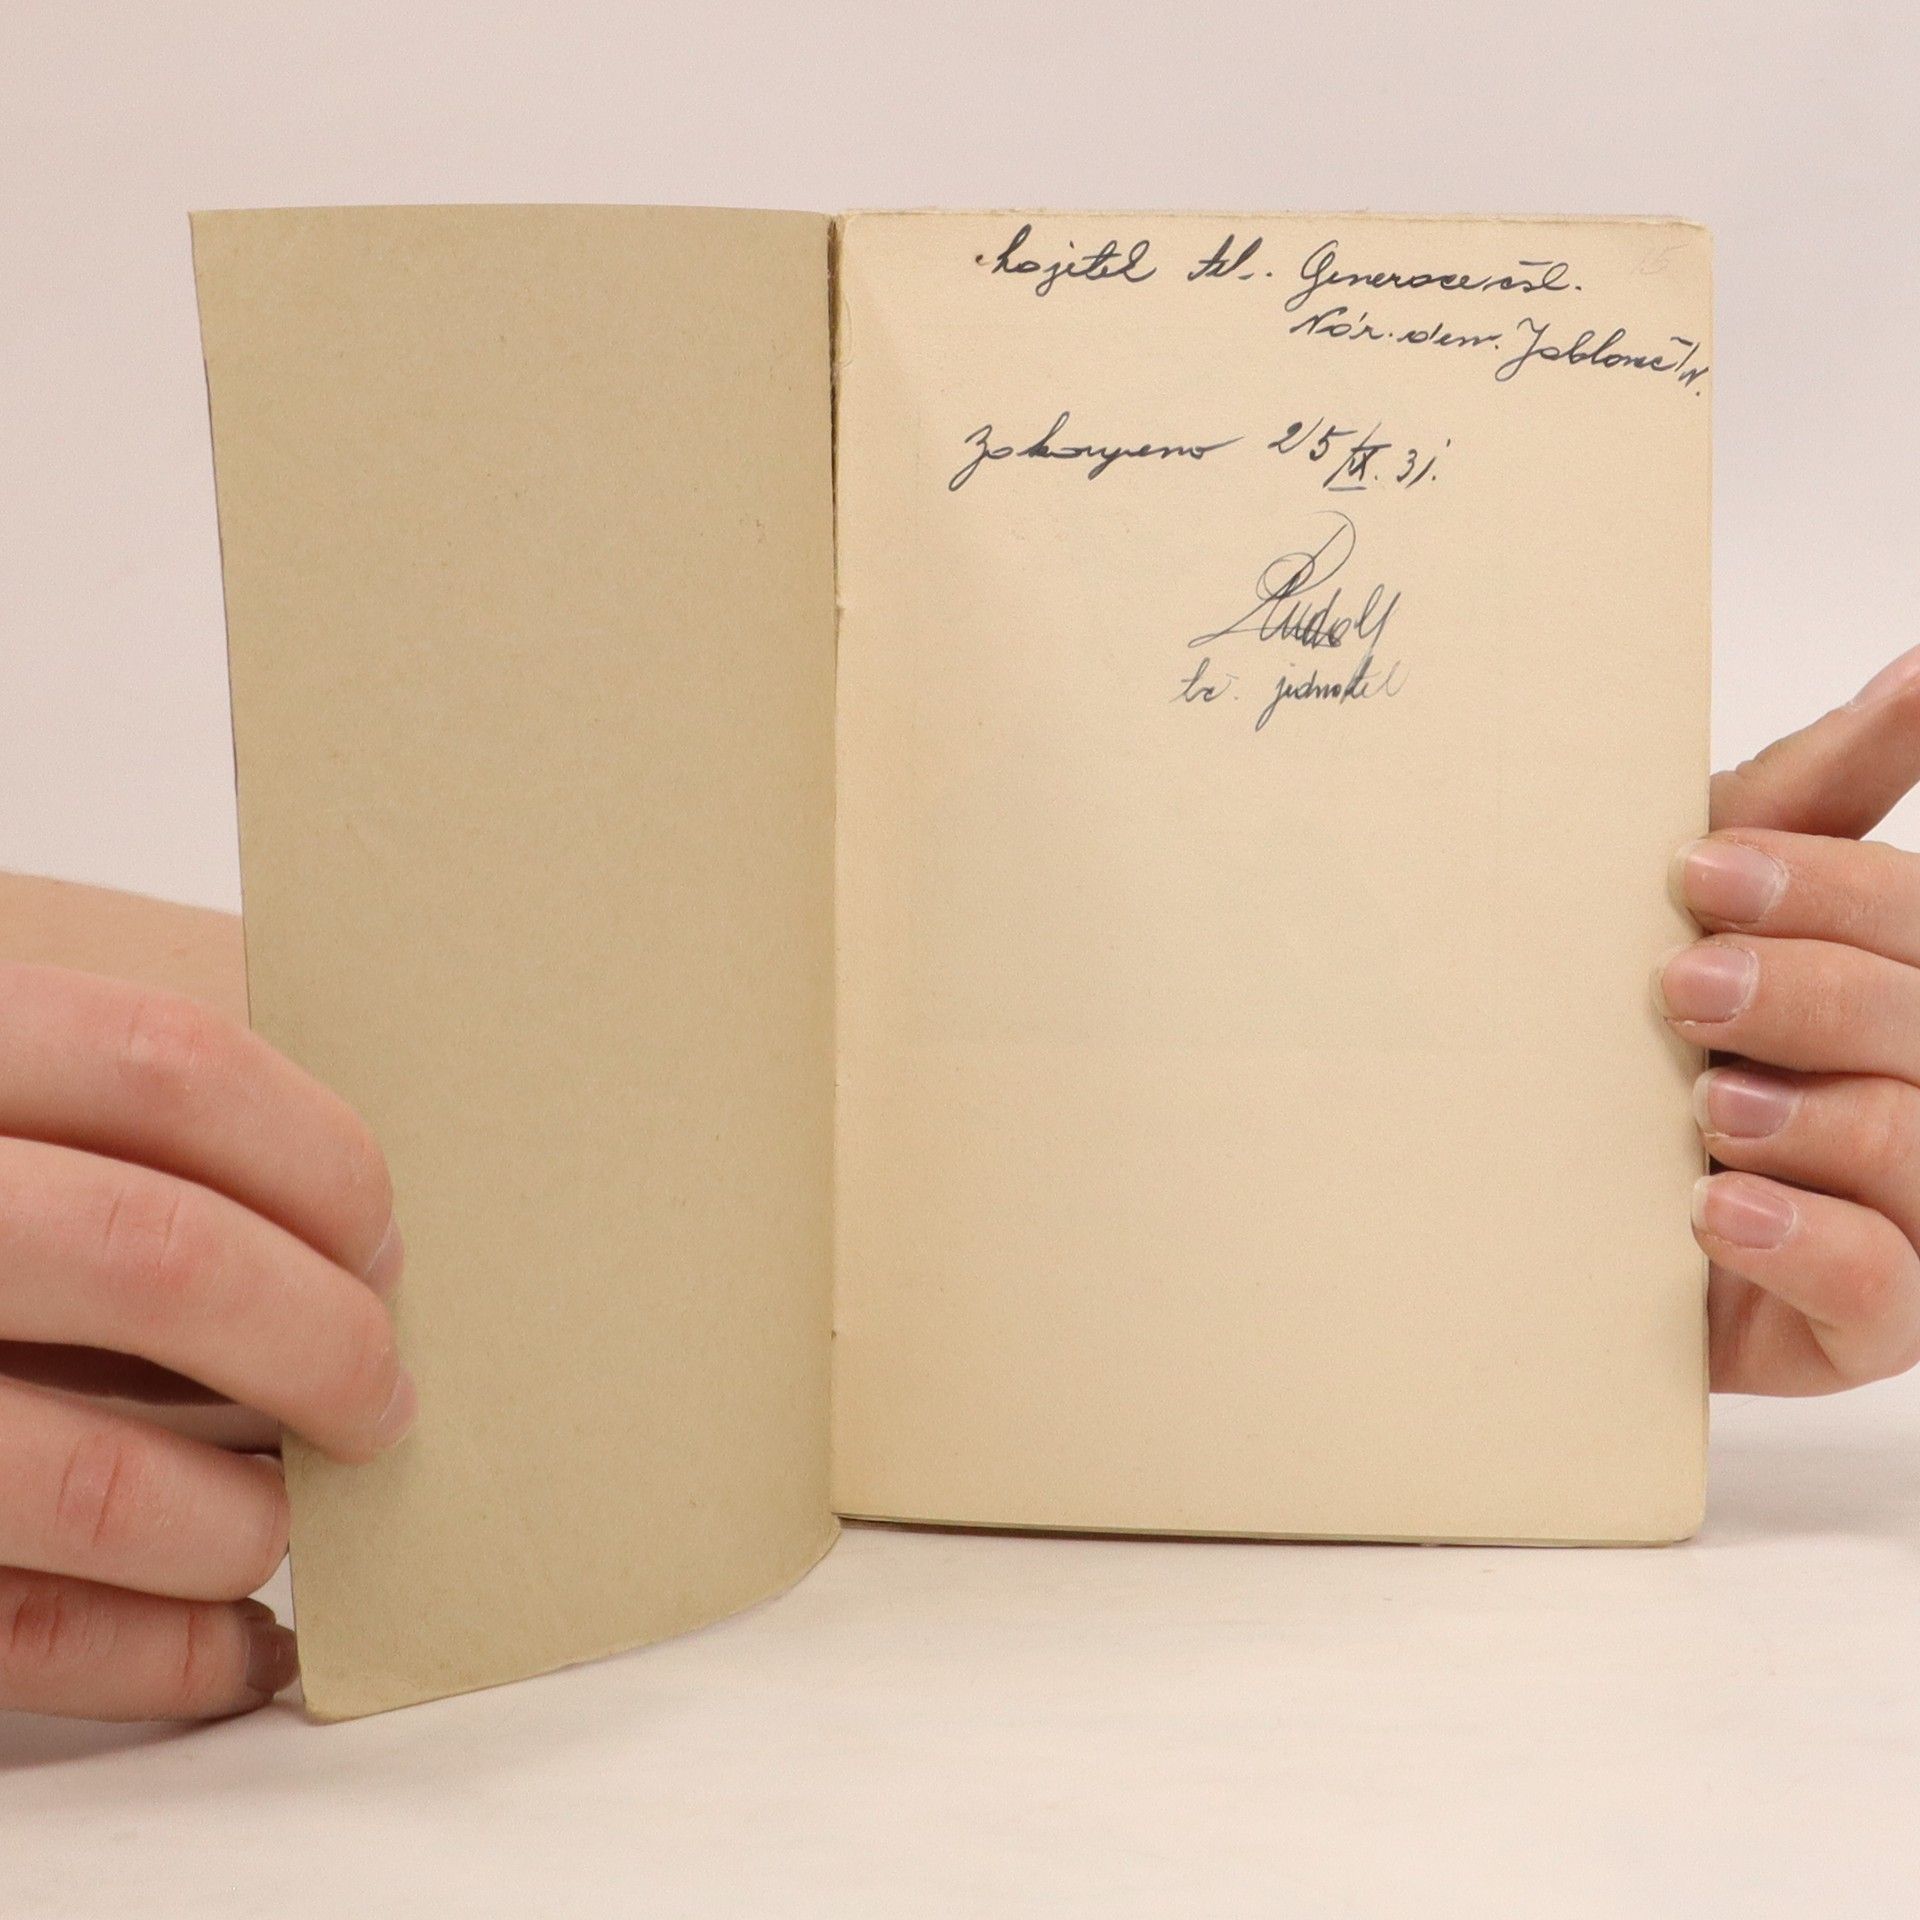 Majitel tel. Generace čsl.
Nár. dem. Jablonec /N.
Zakoupeno 25/IX. 31.
Rudolf
tč. jednatel